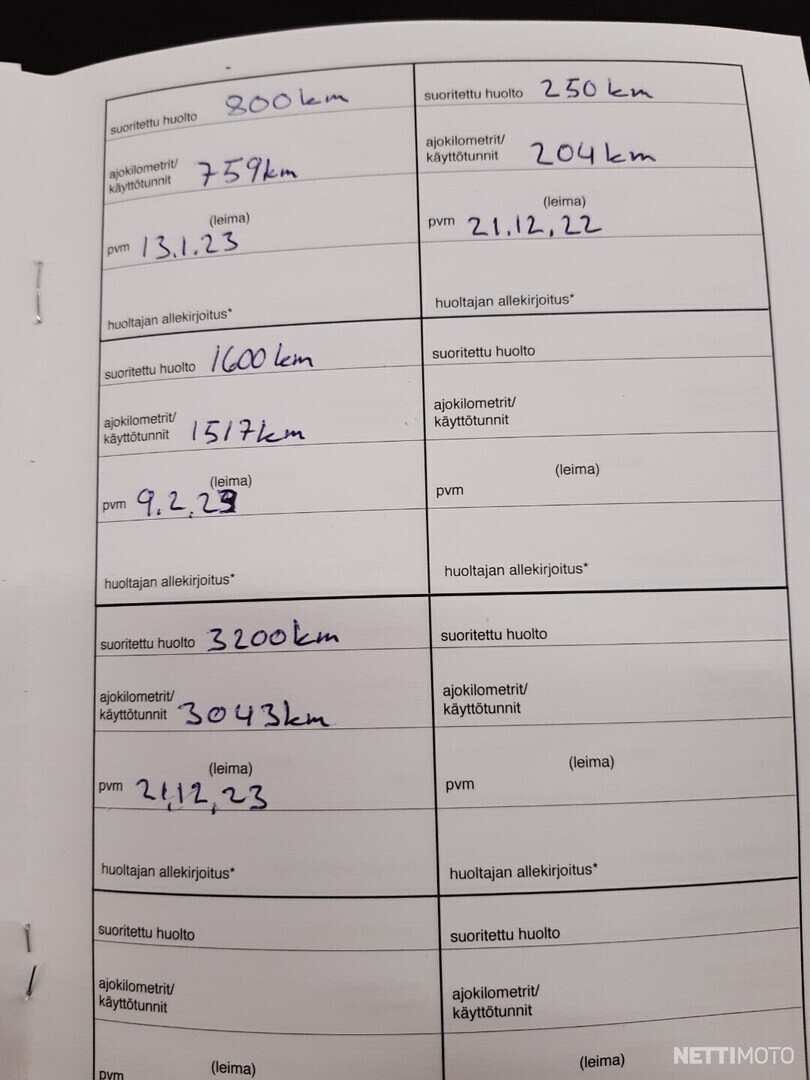 suoritettu huolto 800 km
ajokilometrit/
käyttötunnit 759km
(leima)
pvm 13.1.23
huoltajan allekirjoitus*
suoritettu huolto 250 km
ajokilometrit/
käyttötunnit 204 km
(leima)
pvm 21.12.22
huoltajan allekirjoitus*
suoritettu huolto 1600 km
ajokilometrit/
käyttötunnit 1517km
(leima)
pvm 9.2.23
huoltajan allekirjoitus*
suoritettu huolto
ajokilometrit/
käyttötunnit
(leima)
pvm
huoltajan allekirjoitus*
suoritettu huolto 3200km
ajokilometrit/
käyttötunnit 3043km
(leima)
pvm 21.12.23
huoltajan allekirjoitus*
suoritettu huolto
ajokilometrit/
käyttötunnit
(leima)
pvm
huoltajan allekirjoitus*
suoritettu huolto
ajokilometrit/
käyttötunnit
(leima)
pvm
suoritettu huolto
ajokilometrit/
käyttötunnit
(leima)
NETTIMOTO